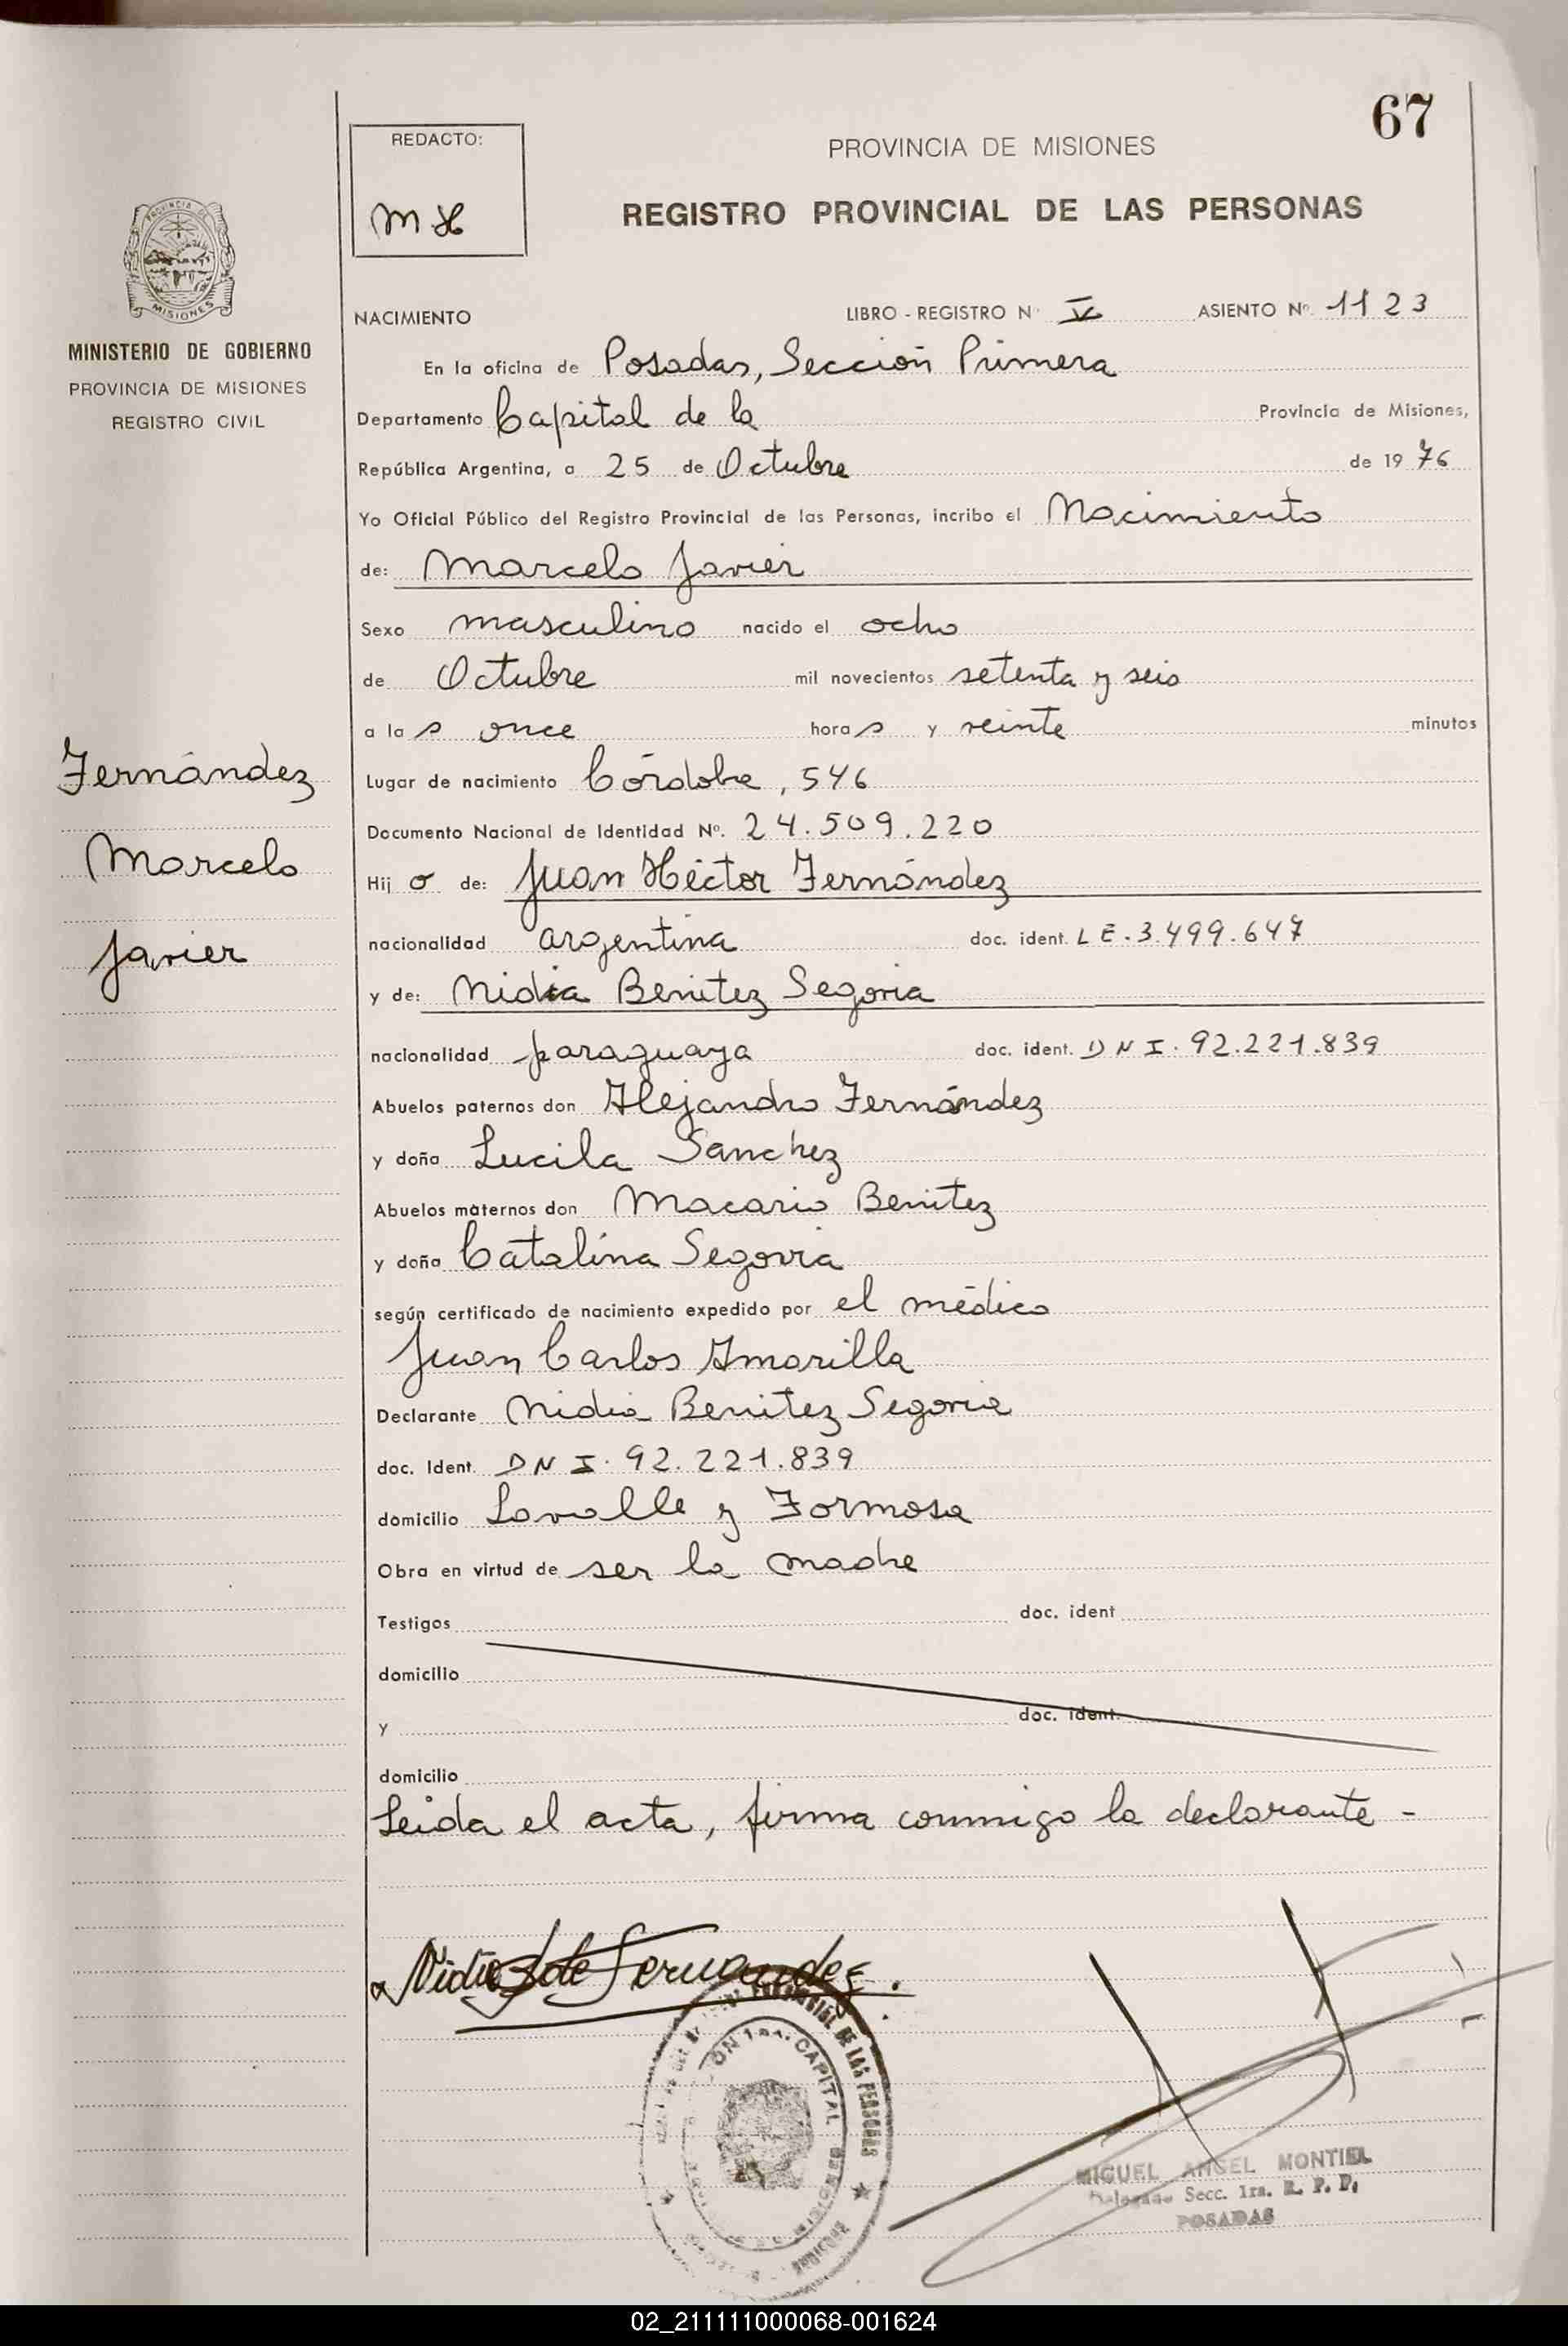 67
REDACTO:
MH
PROVINCIA DE MISIONES
REGISTRO PROVINCIAL DE LAS PERSONAS
PROVINCIA DE
MISIONES
MINISTERIO DE GOBIERNO
PROVINCIA DE MISIONES
REGISTRO CIVIL
Fernández
Marcelo
Javier
NACIMIENTO LIBRO - REGISTRO Nº V ASIENTO Nº 1123
En la oficina de Posadas, Sección Primera
Departamento Capital de la Provincia de Misiones,
República Argentina, a 25 de Octubre de 1976
Yo Oficial Público del Registro Provincial de las Personas, incribo el Nacimiento
de: Marcelo Javier
Sexo masculino nacido el ocho
de Octubre mil novecientos setenta y seis
a las once horas y veinte minutos
Lugar de nacimiento Córdoba, 546
Documento Nacional de Identidad Nº. 24.509.220
Hijo de: Juan Héctor Fernández
nacionalidad argentina doc. ident. LE.3.499.647
y de: Nidia Benitez Segovia
nacionalidad paraguaya doc. ident. DNI. 92.221.839
Abuelos paternos don Alejandro Fernández
y doña Lucila Sanchez
Abuelos maternos don Macario Benitez
y doña Catalina Segovia
según certificado de nacimiento expedido por el médico
Juan Carlos Amarilla
Declarante Nidia Benitez Segovia
doc. Ident. DNI. 92.221.839
domicilio Lavalle y Formosa
Obra en virtud de ser la madre
Testigos doc. ident
domicilio
y doc. ident.
domicilio
Leida el acta, firma conmigo la declarante -
Nidia de Fernandez.
PROVINCIAL DE LAS PERSONAS
CAPITAL
MIGUEL ANGEL MONTIEL
Delegado Secc. 1ra. R. P. P.
POSADAS
02_211111000068-001624